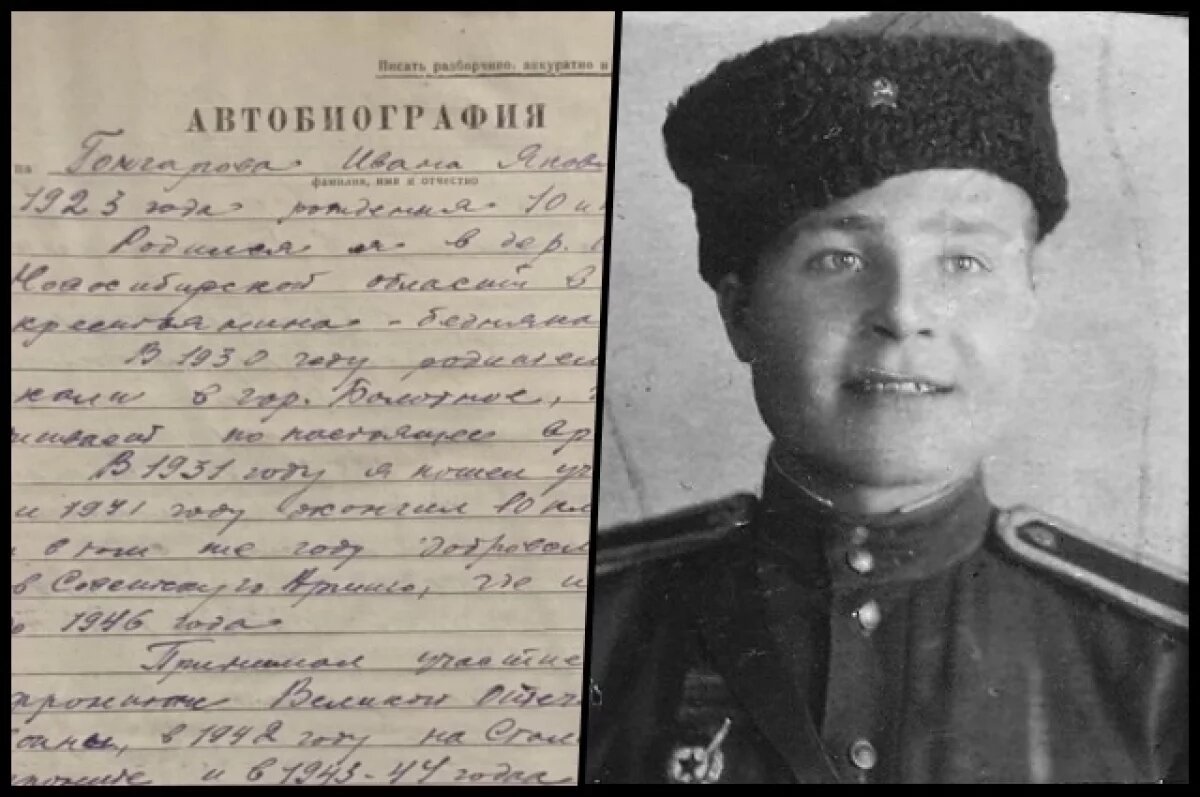 Писать разборчиво, аккуратно и
АВТОБИОГРАФИЯ
на Гончарова Ивана Яков
фамилия, имя и отчество
1923 года рождения 10 и
Родился я в дер.
Новосибирской области в
крестьянина - бедняка
В 1930 году родител
хали в гор. Болотное,
живают по настоящее вр
В 1931 году я пошел уч
и 1941 году окончил 10 кл
в том же году доброволь
в Советскую Армию, где и
о 1946 года
Принимал участие
фронтах Великой Отеч
войны, в 1942 году на Стал
фронте и в 1943-44 годах